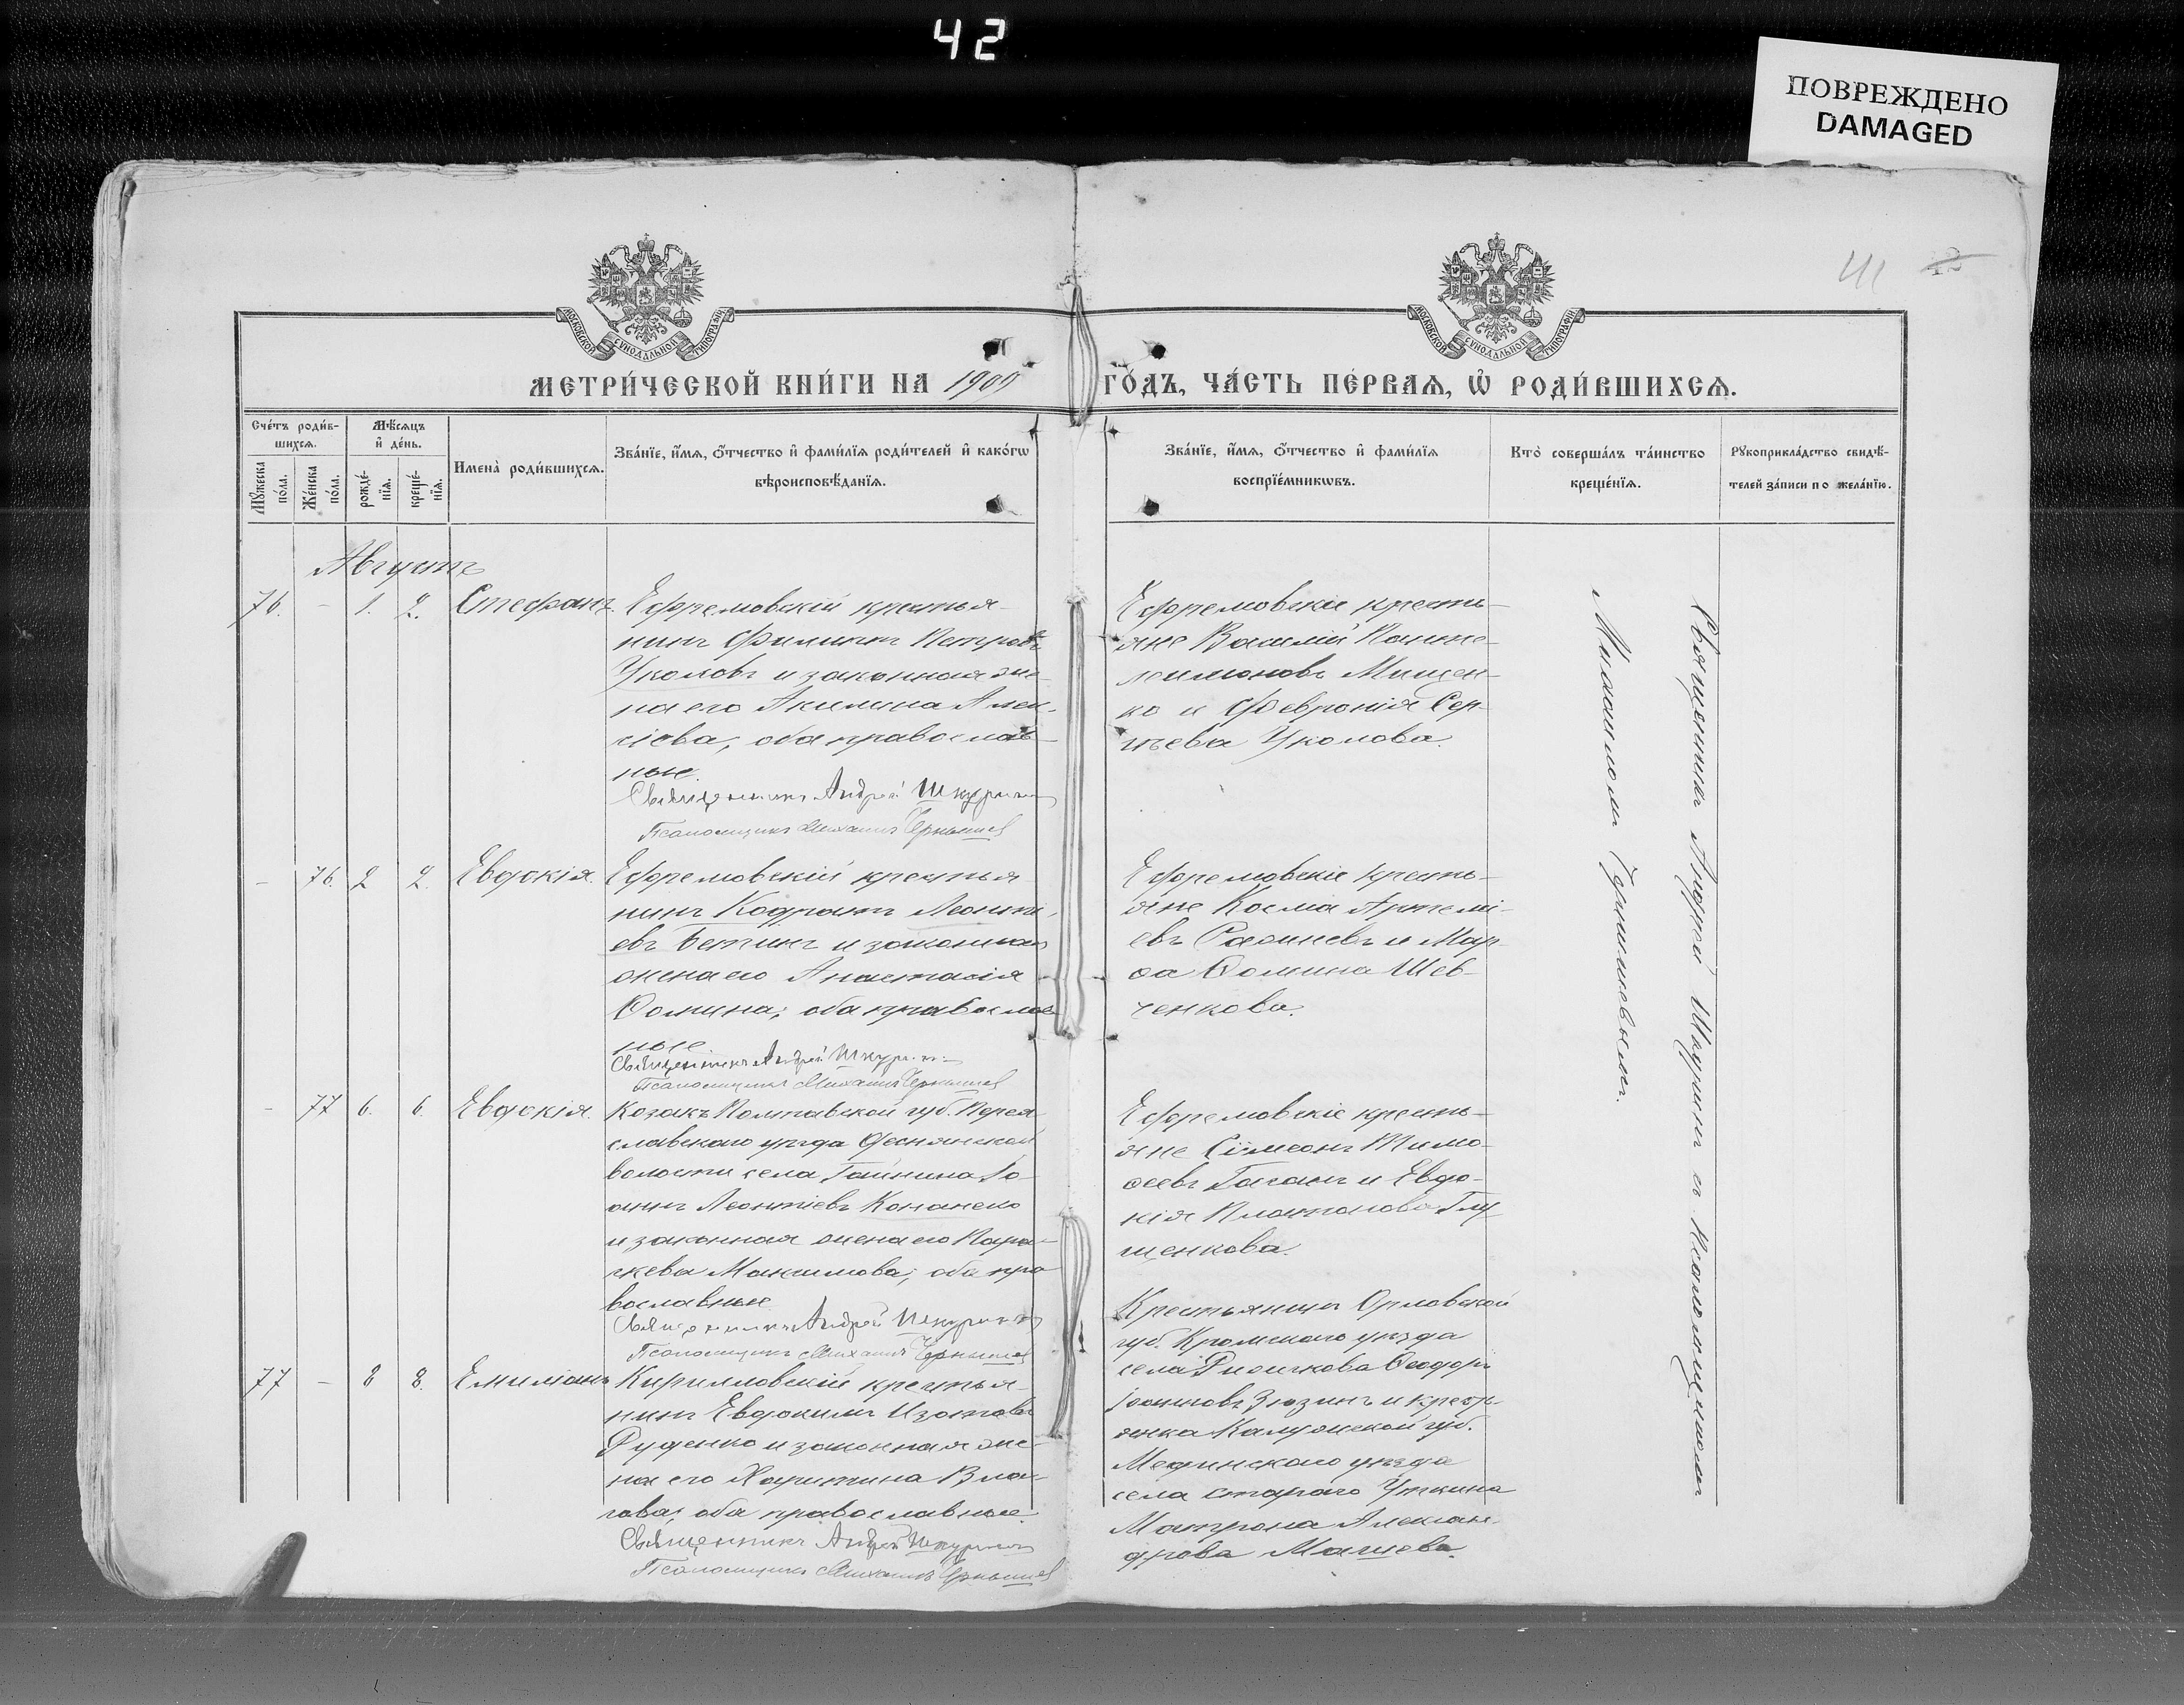 42
ПОВРЕЖДЕНО
DAMAGED
41 42
МОСКОВСКОЙ СѴНОДАЛЬНОЙ ТИПОГРАФІИ
МОСКОВСКОЙ СѴНОДАЛЬНОЙ ТИПОГРАФІИ
МЕТРИ́ЧЕСКОЙ КНИ́ГИ НА 1909 ГО́ДЪ, ЧА́СТЬ ПЕ́РВАѦ, Ѡ҆ РОДИ́ВШИХСѦ.
Сче́тъ роди́в-
шихсѧ.
Мꙋ́жеска по́ла.
Же́нска по́ла.
Мѣ́сѧцъ
и҆ де́нь.
рожде́-
нїѧ.
креще́-
нїѧ.
Имена̀ роди́вшихсѧ.
Зва́нїе, и҆́мѧ, ѻ҆́тчество и҆ фами́лїѧ роди́телей и҆ како́гѡ
вѣроисповѣ́данїѧ.
Зва́нїе, и҆́мѧ, ѻ҆́тчество и҆ фами́лїѧ
воспрїе́мникѡвъ.
Кто̀ соверша́лъ та́инство
креще́нїѧ.
Рꙋкоприкла́дство свидѣ́-
телей за́писи по жела́нїю.
Августъ
76. - 1. 2. Стефанъ
Ефремовскій крестья-
нинъ Филиппъ Петровъ
Уколовъ и законная же-
на его Акилина Алек-
сіева, оба православ-
ные.
Священникъ Андрей Шкуринъ
Псаломщикъ Михаилъ Чернышев
Ефремовскіе кресть-
яне Василій Панте-
леимоновъ Мищен-
ко и Февронія Сер-
гѣева Уколова.
- 76. 2 2. Евдокія.
Ефремовскій крестья
нинъ Кодратъ Леонті-
евъ Бетинъ и законная
жена его Анастасія
Ѳомина; оба православ
ные.
Священникъ Андрей Шкуринъ
Псаломщикъ Михаилъ Чернышев
Ефремовскіе кресть-
яне Косма Артемі-
евъ и Мар-
ѳа Ѳомина Шев-
ченкова.
- 77 6. 6. Евдокія.
Козакъ Полтавской губ. Перея
славскаго уѣзда
волости села Іо-
аннъ Леонтіевъ Кононенко
и законная жена его Пара-
скева Максимова; оба пра
вославные
Священникъ Андрей Шкуринъ
Псаломщикъ Михаилъ Чернышев
Ефремовскіе кресть-
яне Сѵмеонъ Тимо-
ѳеевъ и Евдо-
кія Платонова Глу-
щенкова.
77 - 8 8. Емиліанъ
Кирилловскій крестья-
нинъ Евдокимъ Изотовъ
Руденко и законная же-
на его Харитина Вла-
сова; оба православные.
Священникъ Андрей Шкуринъ
Псаломщикъ Михаилъ Чернышев
Крестьянинъ Орловской
губ. Кромскаго уѣзда
села Ѳеодоръ
Іоанновъ Зюзинъ и кресть-
янка Калужской губ.
Медынскаго уѣзда
села Стараго Уткина
Матрона Алексан-
дрова
Священникъ Андрей Шкуринъ съ псаломщикомъ
Михаиломъ Чернышевымъ.